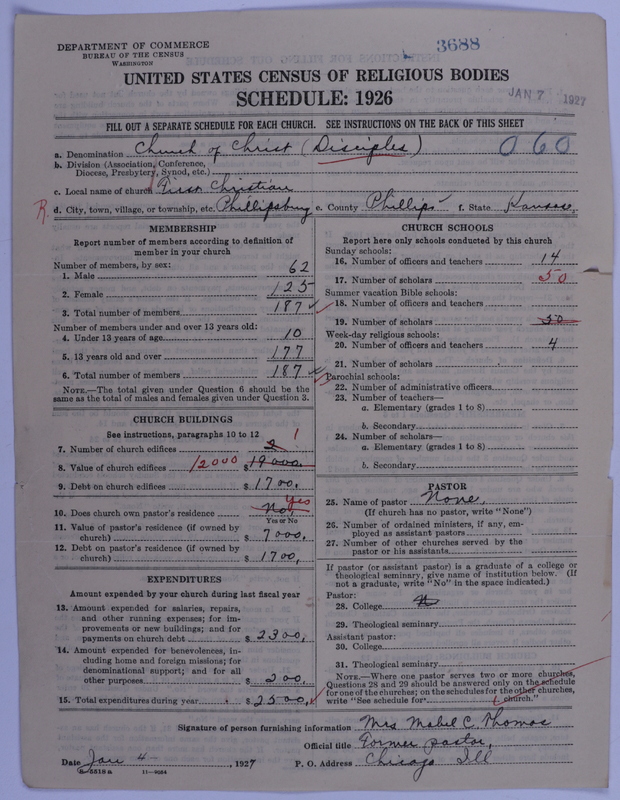 DEPARTMENT OF COMMERCE
BUREAU OF THE CENSUS
WASHINGTON
3688
UNITED STATES CENSUS OF RELIGIOUS BODIES
SCHEDULE: 1926
JAN 7 1927
FILL OUT A SEPARATE SCHEDULE FOR EACH CHURCH. SEE INSTRUCTIONS ON THE BACK OF THIS SHEET
a. Denomination Church of Christ (Disciples) 060
b. Division (Association, Conference,
Diocese, Presbytery, Synod, etc.)
c. Local name of church First Christian
R. d. City, town, village, or township, etc. Phillipsburg e. County Phillips f. State Kansas,
MEMBERSHIP
Report number of members according to definition of
member in your church
Number of members, by sex:
1. Male 62
2. Female 125
3. Total number of members 187
Number of members under and over 13 years old:
4. Under 13 years of age 10
5. 13 years old and over 177
6. Total number of members 187
NOTE.—The total given under Question 6 should be the
same as the total of males and females given under Question 3.
CHURCH BUILDINGS
See instructions, paragraphs 10 to 12
7. Number of church edifices 2 1
8. Value of church edifices 12000 $19000.
9. Debt on church edifices $1700.
10. Does church own pastor's residence No Yes
Yes or No
11. Value of pastor's residence (if owned by
church) $7000.
12. Debt on pastor's residence (if owned by
church) $1700,
EXPENDITURES
Amount expended by your church during last fiscal year
13. Amount expended for salaries, repairs,
and other running expenses; for im-
provements or new buildings; and for
payments on church debt $2300,
14. Amount expended for benevolences, in-
cluding home and foreign missions; for
denominational support; and for all
other purposes $200,
15. Total expenditures during year $2500,
CHURCH SCHOOLS
Report here only schools conducted by this church
Sunday schools:
16. Number of officers and teachers 14
17. Number of scholars 50
Summer vacation Bible schools:
18. Number of officers and teachers
19. Number of scholars 50
Week-day religious schools:
20. Number of officers and teachers 4
21. Number of scholars
Parochial schools:
22. Number of administrative officers
23. Number of teachers—
a. Elementary (grades 1 to 8)
b. Secondary
24. Number of scholars—
a. Elementary (grades 1 to 8)
b. Secondary
PASTOR
25. Name of pastor None,
(If church has no pastor, write "None")
26. Number of ordained ministers, if any, em-
ployed as assistant pastors
27. Number of other churches served by the
pastor or his assistants
If pastor (or assistant pastor) is a graduate of a college or
theological seminary, give name of institution below. (If
not a graduate, write "No" in the space indicated.)
Pastor:
28. College
29. Theological seminary
Assistant pastor:
30. College
31. Theological seminary
NOTE.—Where one pastor serves two or more churches,
Questions 28 and 29 should be answered only on the schedule
for one of the churches; on the schedules for the other churches,
write "See schedule for church."
Signature of person furnishing information Mrs Mabel C. Thomas
Official title Former pastor,
Date Jan 4 , 1927 P. O. Address Chicago Ill
8-5518 a 11-9054